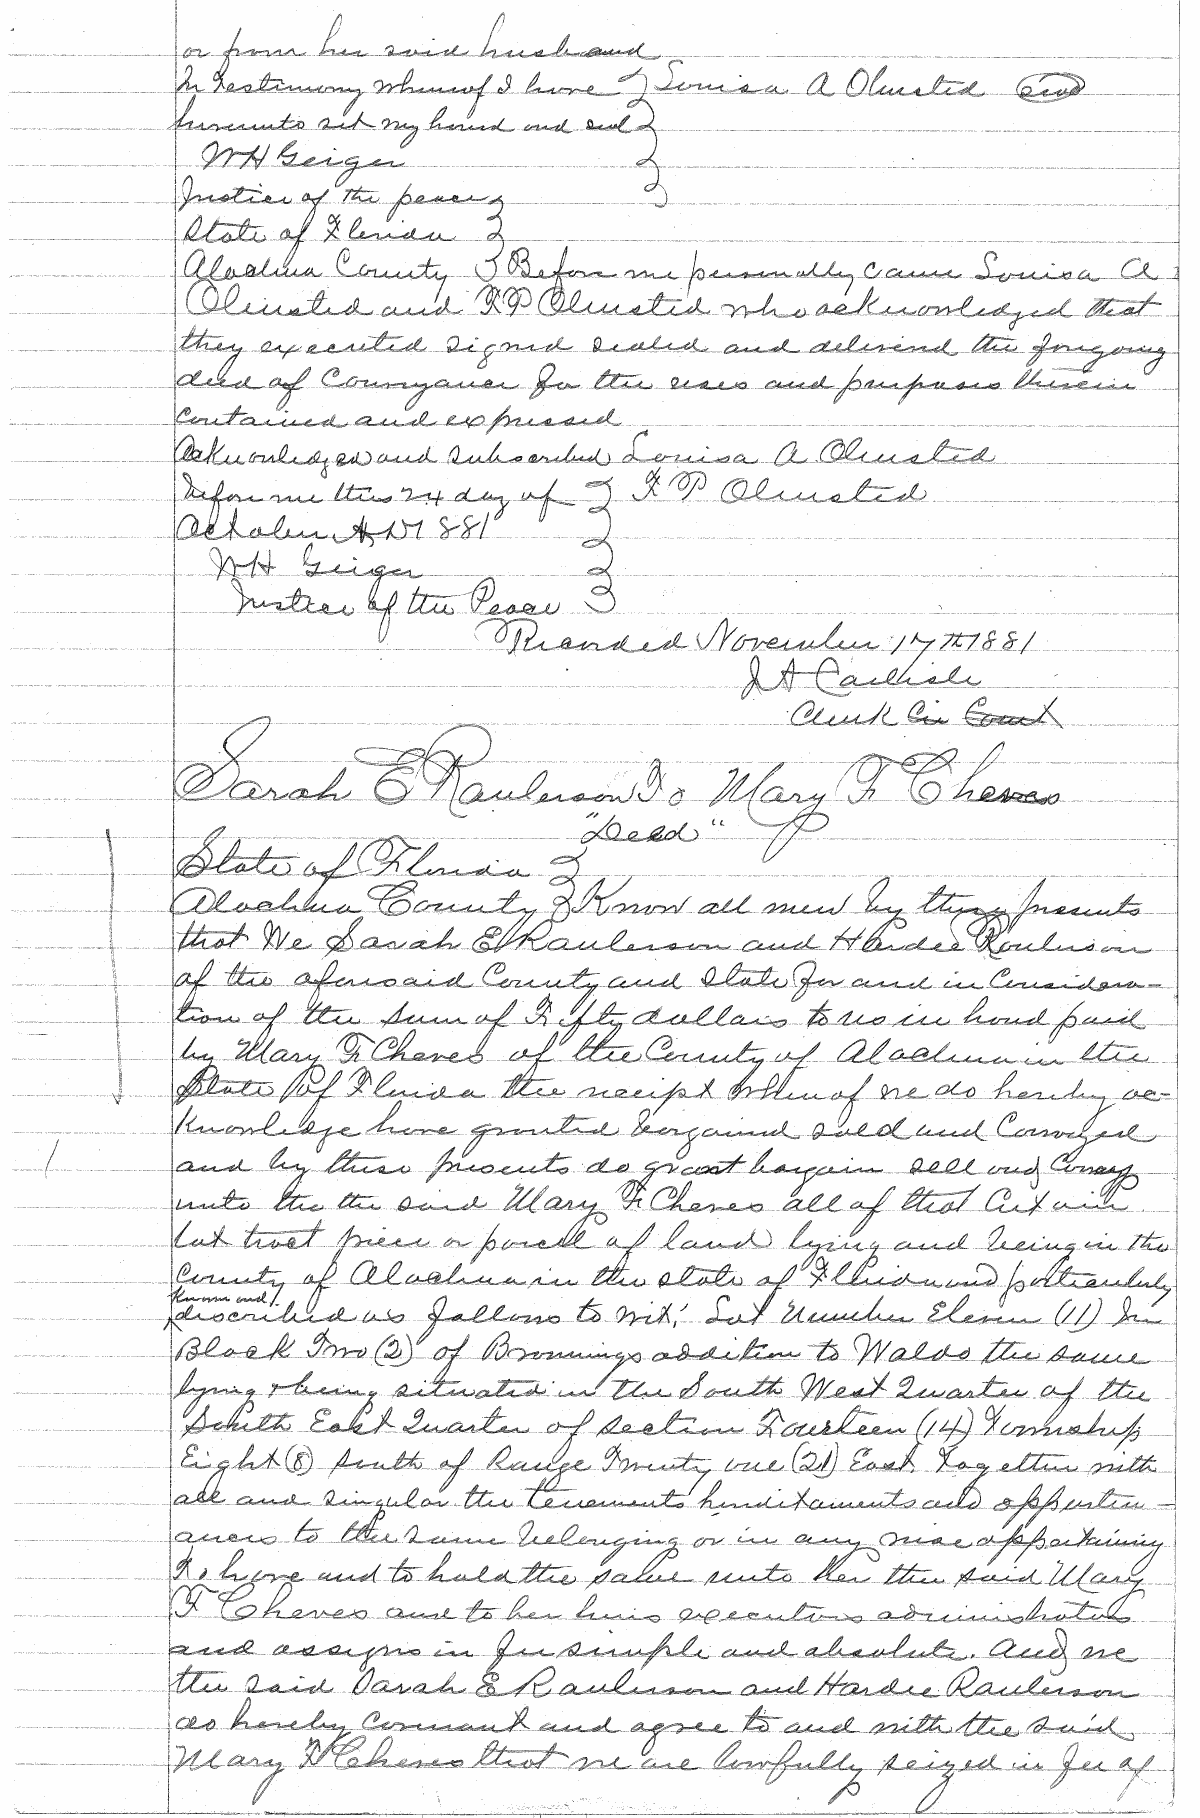 or from her said husband
In Testimony Whereof I have } Louisa A Olmsted seal
hereunto set my hand and seal }
W H Geiger
Justice of the peace }
State of Florida }
Alachua County } Before me personally came Louisa A
Olmsted and F P Olmsted who acknowledged that
they executed signed sealed and delivered the foregoing
deed of Conveyance for the uses and purposes therein
contained and expressed
Acknowledged and subscribed Louisa A Olmsted
before me this 24 day of } F P Olmsted
October A D 1881
W H Geiger
Justice of the Peace }
Recorded November 17th 1881
J A Carlisle
Clerk Cir Court
Sarah E Raulerson To Mary F Cheves
"Deed"
State of Florida }
Alachua County } Know all men by these presents
that We Sarah E Raulerson and Hardee Raulerson
of the aforesaid County and State for and in Considera-
tion of the sum of Fifty dollars to us in hand paid
by Mary F Cheves of the County of Alachua in the
State of Florida the receipt whereof we do hereby ac-
knowledge have granted bargained sold and Conveyed
and by these presents do grant bargain sell and Convey
unto the the said Mary F Cheves all of that Certain
lot tract piece or parcel of land lying and being in the
County of Alachua in the state of Florida and particularly
known and
described as follows to wit: Lot Number Eleven (11) In
Block Two (2) of Brownings addition to Waldo the same
lying & being situated in the South West Quarter of the
South East Quarter of section Fourteen (14) Township
Eight (8) South of Range Twenty one (21) East. Together with
all and singular the tenements hereditaments and appurten-
ances to the same belonging or in any wise appertaining
To have and to hold the same unto her the said Mary
F Cheves and to her heirs executors administrators
and assigns in fee simple and absolute. And we
the said Sarah E Raulerson and Hardee Raulerson
do hereby Covenant and agree to and with the said
Mary F Cheves that we are lawfully seized in fee of